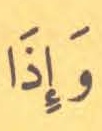 وَإِذَا